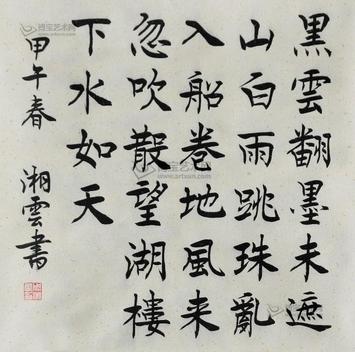 黑雲翻墨未遮
山白雨跳珠亂
入船卷地風来
忽吹散望湖樓
下水如天
甲午春 湘雲書
博宝艺术网
www.artxun.com